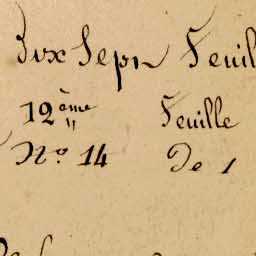 Dix Sept Feuil
12ème Feuille
N.º 14 De 1